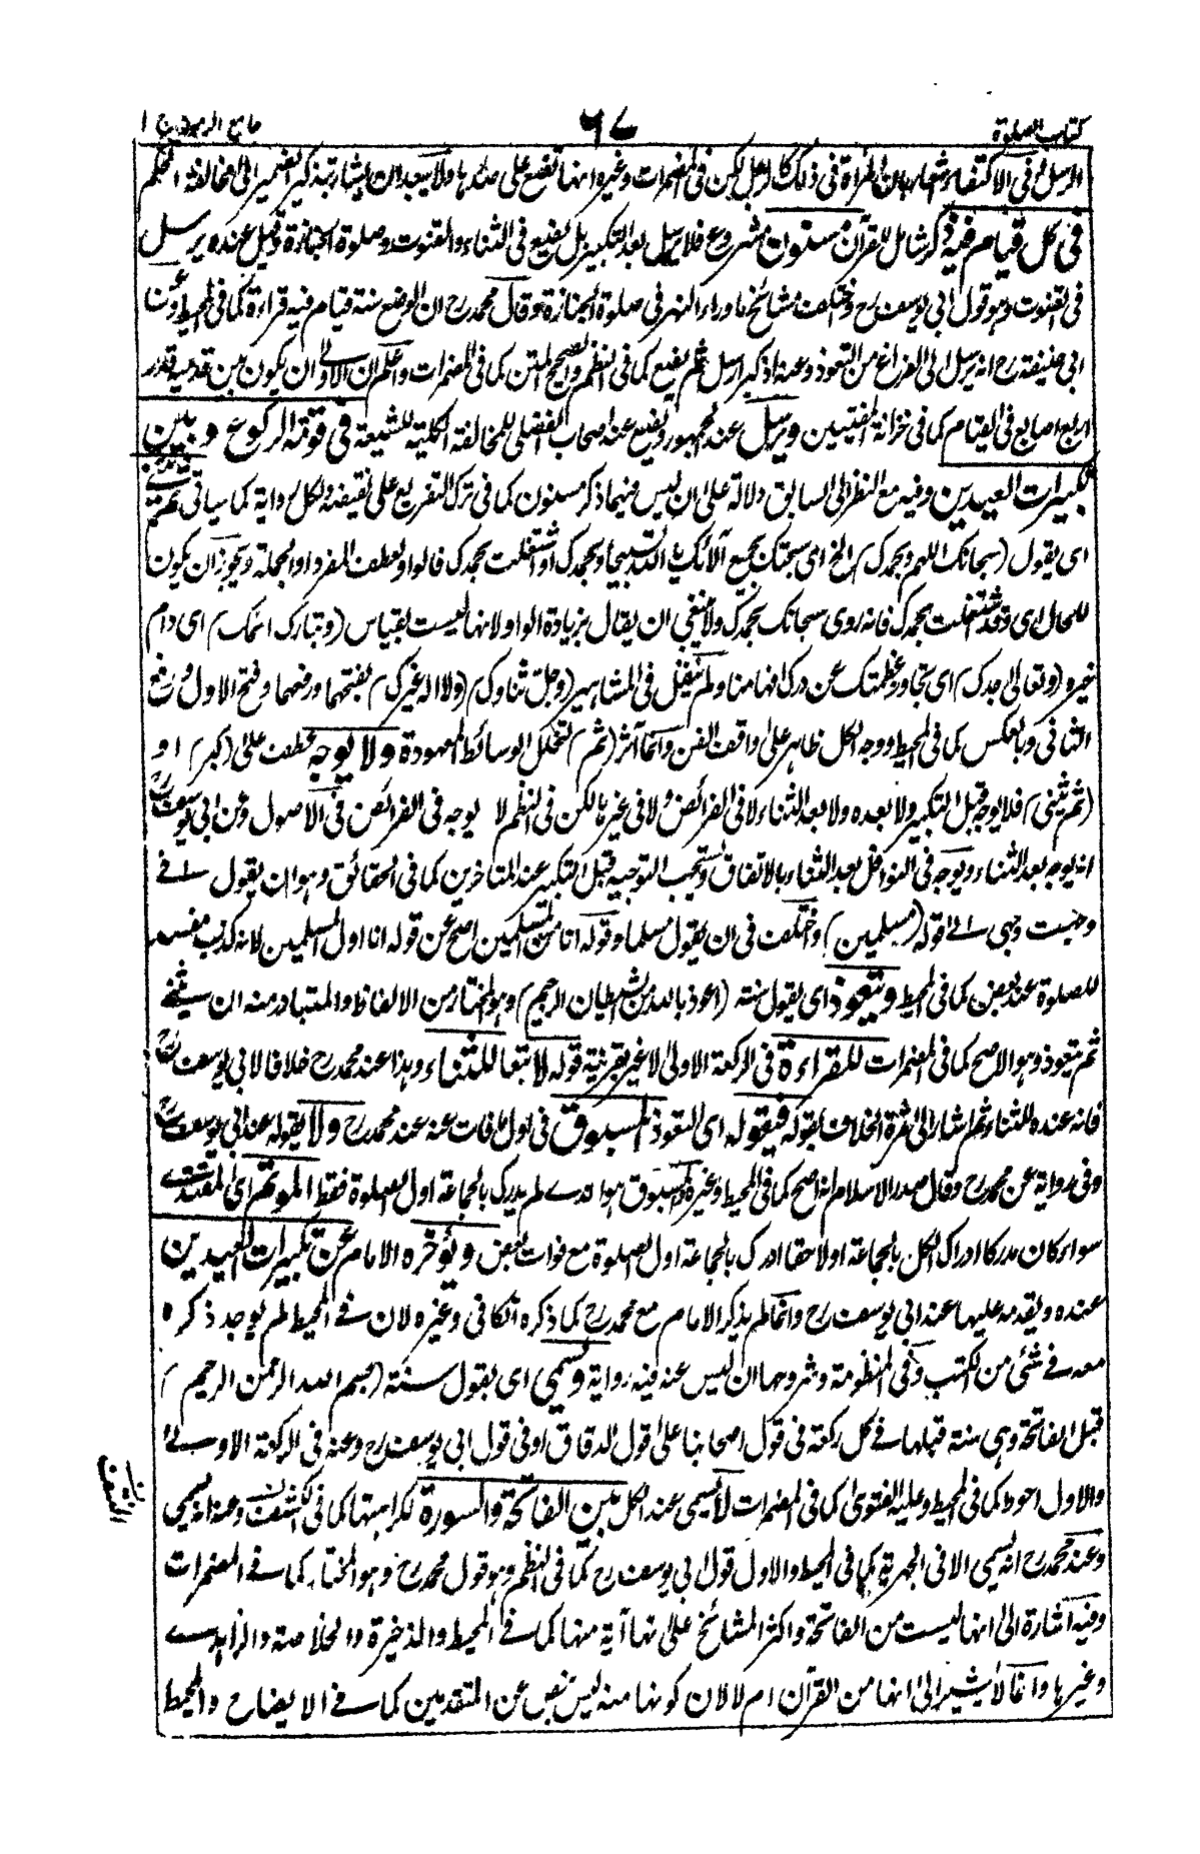 كتاب الصلوة
٦٧
جامع الرموز ج ١
الرسل وفى الاكتفاء اشعار بان المرأة فى ذلك كالرجل لكن فى المضمرات وغيره انها تضع على صدرها ولا يبعد ان يشار بتذكير الضمير الى مخالفة الحكم
فى كل قيام فيه ذكر شامل للقرآن مسنون مشروع فلا يرسل بعد التكبير بل يضع فى الثناء والقنوت وصلوة الجنازة وقيل عنده يرسل
فى القنوت وهو قول ابى يوسف رح واختلف مشائخ ما وراء النهر فى صلوة الجنازة وقال محمد رح ان الوضع سنة قيام فيه قراءة كما فى المحيط وعن
ابى حنيفة رح انه يرسل الى الفراغ من التعوذ وعنه اذ كبر ارسل ثم يضع كما فى النظم والصحيح المتن كما فى المضمرات واعلم ان الاولى ان يكون بين قدميه قدر
اربع اصابع فى القيام كما فى خزانة المفتيين ويرسل عند الجمهور ويضع عند اصحاب الفضلى للمخالفة الكلية للشيعة فى قومة الركوع وبين
تكبيرات العيدين وفيه مع النظر الى السابق دلالة على ان ليس فيهما ذكر مسنون كما فى ترك التفريع على نقيضه ولكل رواية كما سيأتى ثم يثنى
اى يقول (سبحانك اللهم وبحمدك) الخ اى سبحتك بجميع آلائك يا الله تسبيحا وبحمدك او اشتغلت بحمدك فالواو لعطف المفرد او الجملة ويجوز ان يكون
للحال اى وقد اشتغلت بحمدك فانه روى سبحانك بحمدك ولا ينبغى ان يقال بزيادة الواو لانها ليست بقياس (وتبارك اسمك) اى دام
خيره (وتعالى جدك) اى تجاوز عظمتك عن درك افهامنا ولم ينقل فى المشاهير (وجل ثناوك) (ولا اله غيرك) بفتحهما ورفعهما وفتح الاول ورفع
الثانى وبالعكس كما فى المحيط ووجه الكل ظاهر على واقف الفن وانما آثر (ثم) لتخلل الوسائط المعهودة ولا يوجه عطف على (كبر) او
(ثم يثنى) فلا يوجه قبل التكبير ولا بعده ولا بعد الثناء لا فى الفرائض ولا فى غيرها لكن فى النظم لا يوجه فى الفرائض فى الاصول وعن ابى يوسف رح
انه يوجه بعد الثناء ويوجه فى النوافل بعد الثناء بالاتفاق ويستحب التوجيه قبل التكبير عند المتاخرين كما فى الحقائق وهو ان يقول انى
وجهت وجهى الى قوله (مسلمين) واختلف فى ان يقول مسلما وقوله انا من المسلمين اصح عن قوله انا اول المسلمين لانه كذب مفسد
للصلوة عند بعض كما فى المحيط ويتعوذ اى يقول سنة (اعوذ بالله من الشيطان الرجيم) وهو المختار من الالفاظ والمتبادر منه ان يثنى
ثم يتعوذ وهو الاصح كما فى المضمرات للقراءة فى الركعة الاولى لا غير بقرينة قوله لا تبعا للثناء وهذا عند محمد رح خلافا لابى يوسف رح
فانه عنده للثناء ثم اشار الى ثمرة الخلاف بقوله فيقوله اى التعوذ المسبوق فى اول ما فات عنه عند محمد رح ولا يقوله عند ابى يوسف رح
وفى رواية عن محمد رح وقال صدر الاسلام انه اصح كما فى المحيط وغيره والمسبوق هو الذى لم يدرك بالجماعة اول الصلوة فقط الموتم اى المقتدى
سواء كان مدركا ادراك الكل بالجماعة او لاحقا ادرك بالجماعة اول الصلوة مع فوات البعض ويؤخره الامام عن تكبيرات العيدين
عنده ويقدمه عليها عند ابى يوسف رح وانما لم يذكر الامام مع محمد رح كما ذكره الكافى وغيره لان فى المحيط لم يوجد ذكره
معه فى شئى من الكتب وفى المنظومة وشروحها ان ليس عنه فيه رواية ويسمى اى يقول سنة (بسم الله الرحمن الرحيم)
قبل الفاتحة وهى سنة قبلها فى كل ركعة فى قول اصحابنا على قول الدقاق او فى قول ابى يوسف رح وعنه فى الركعة الاولى
والاول احوط كما فى المحيط وعليه الفتوى كما فى المضمرات لا يسمى عند الكل بين الفاتحة والسورة لكراهتها كما فى الكشف وعنه انه يسمى
وعند محمد رح انه يسمى الا فى الجهرية كما فى المحيط والاول قول ابى يوسف رح كما فى النظم وهو قول محمد رح وهو المختار كما فى المضمرات
وفيه اشارة الى انها ليست من الفاتحة واكثر المشائخ على انها آية منها كما فى المحيط والذخيرة والخلاصة والزاهدى
وغيرها وانما لا يشير الى انها من القرآن ام لا لان كونها منه ليس بنص عن المتقدمين كما فى الايضاح والمحيط